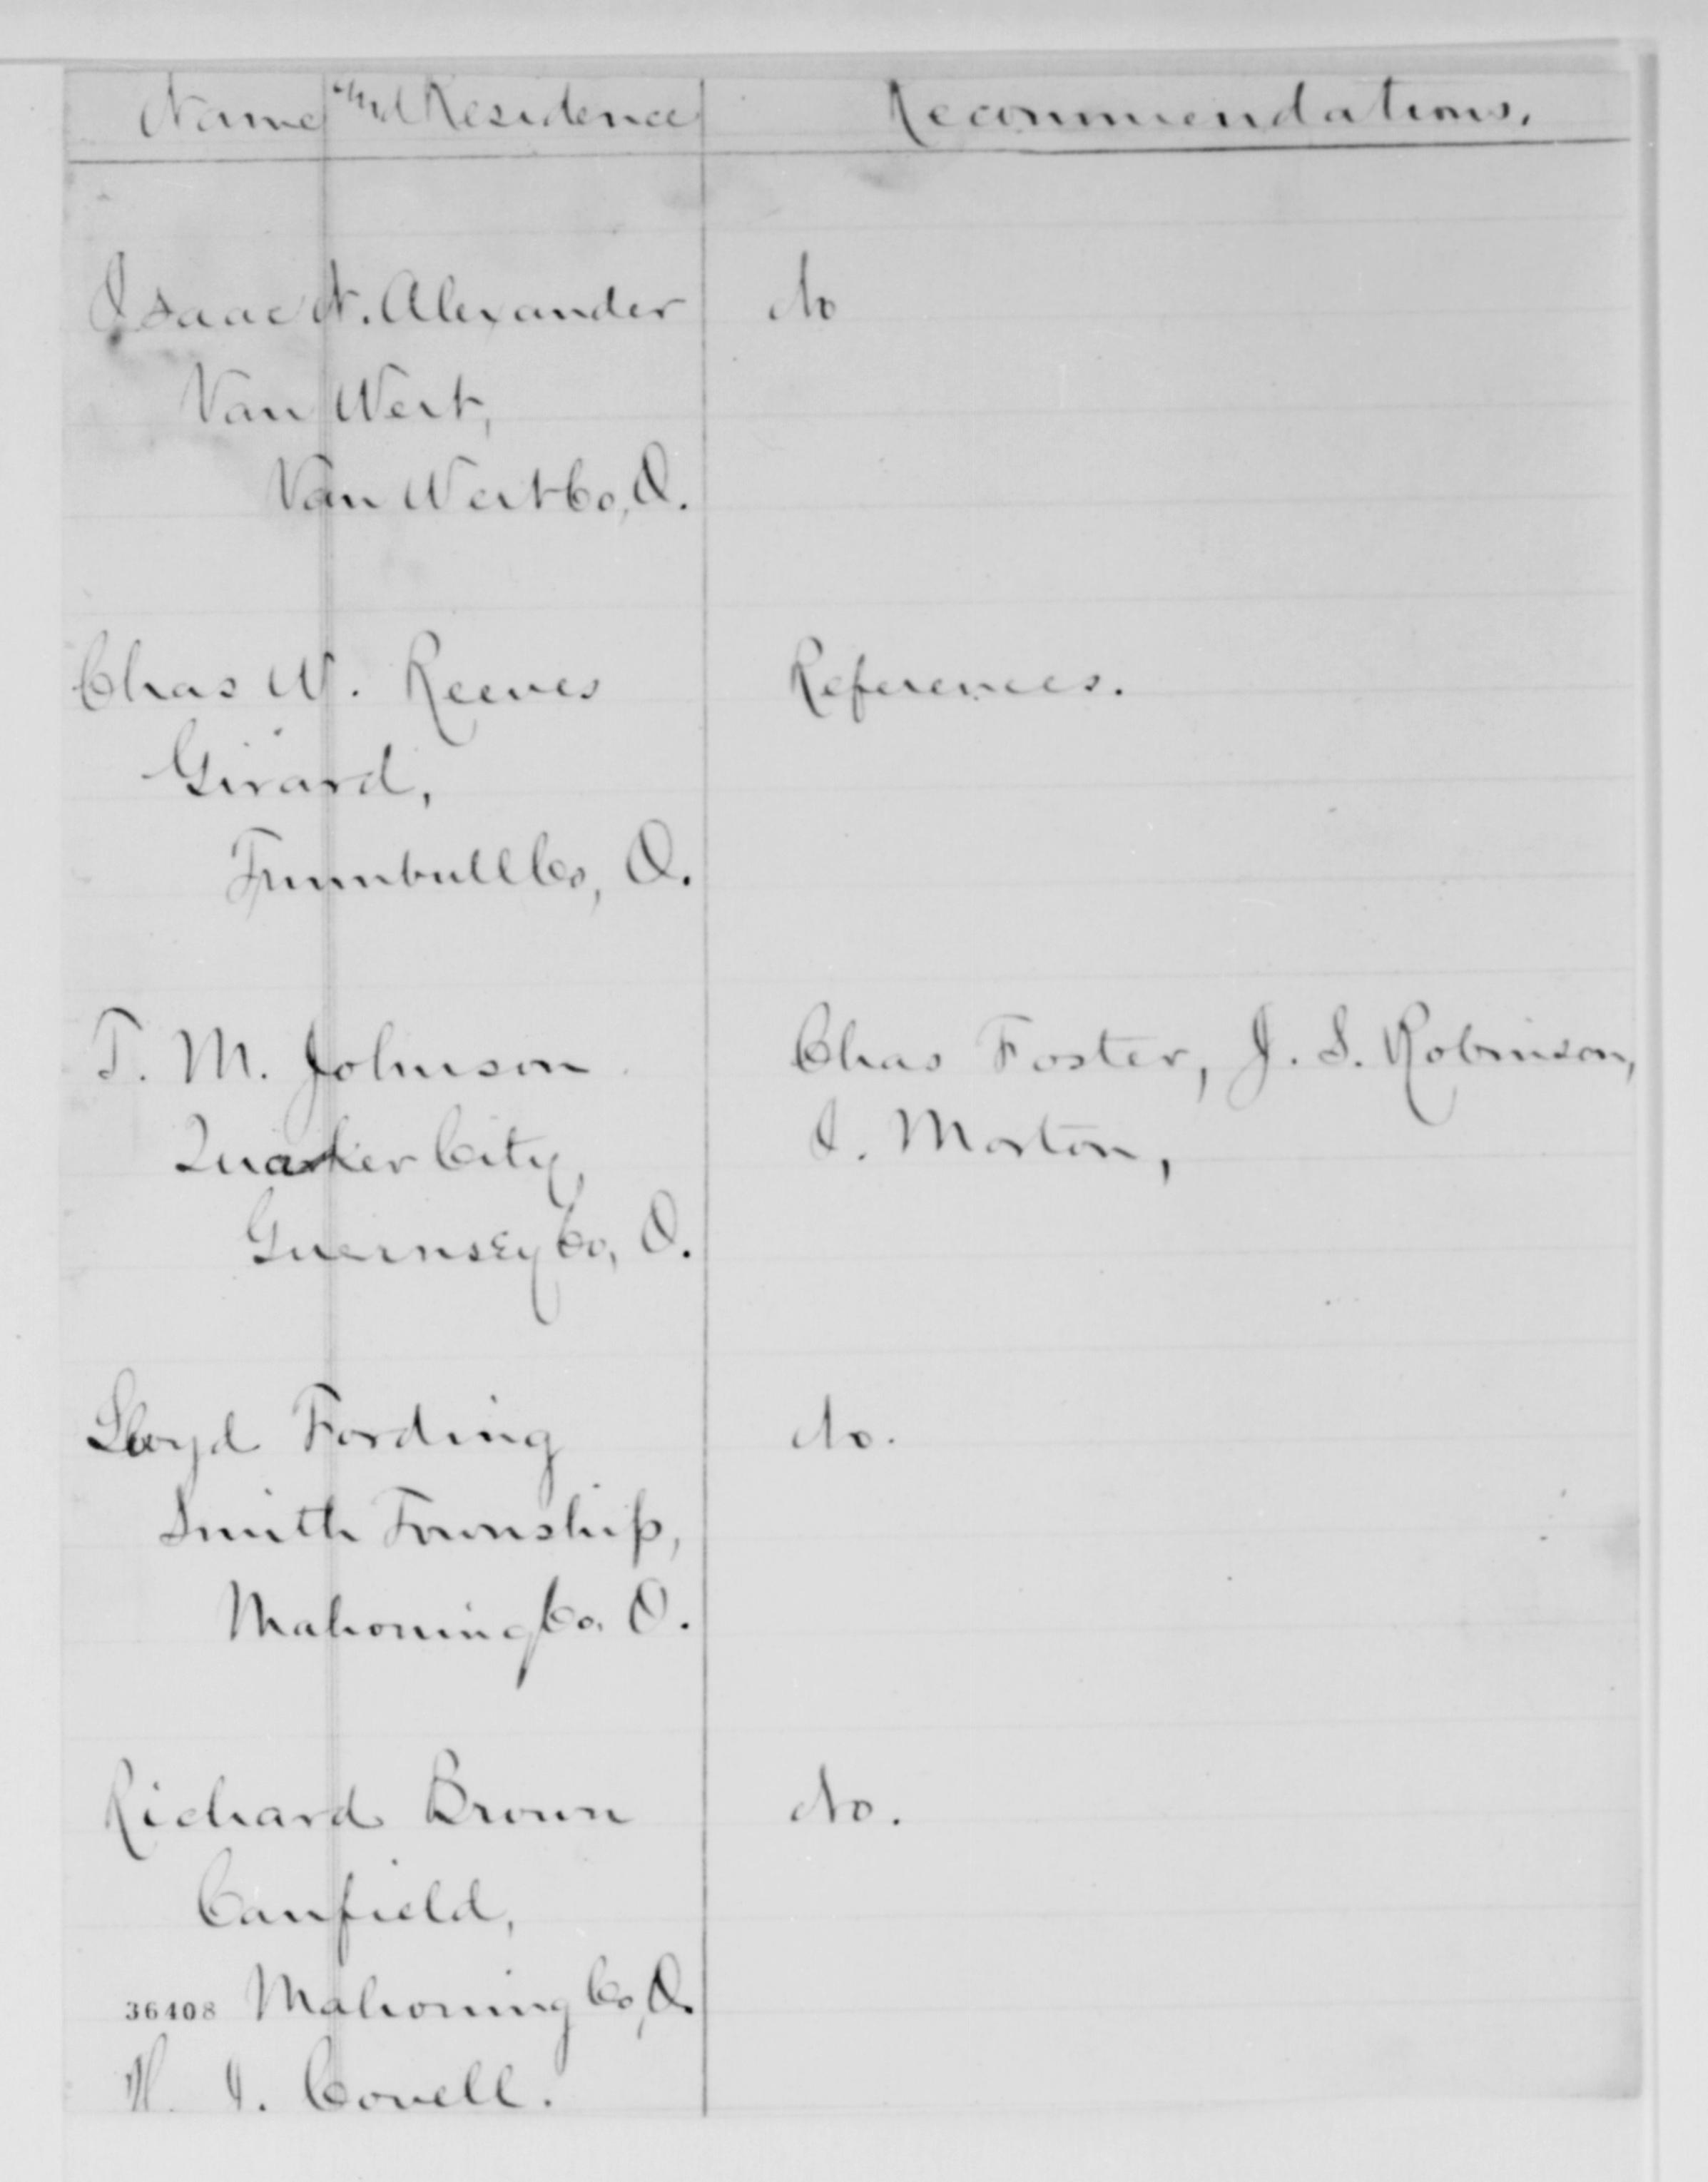 Name and Residence Recommendations.
Isaac N. Alexander No
Van Wert,
Van Wert Co, O.
Chas W. Reeves References.
Girard,
Trumbull Co, O.
T. M. Johnson Chas Foster, J. S. Robinson,
Quaker City, I. Morton,
Guernsey Co, O.
Lloyd Fording No.
Smith Township,
Mahoning Co. O.
Richard Brown No.
Canfield,
36408 Mahoning Co, O.
H. I. Covell.